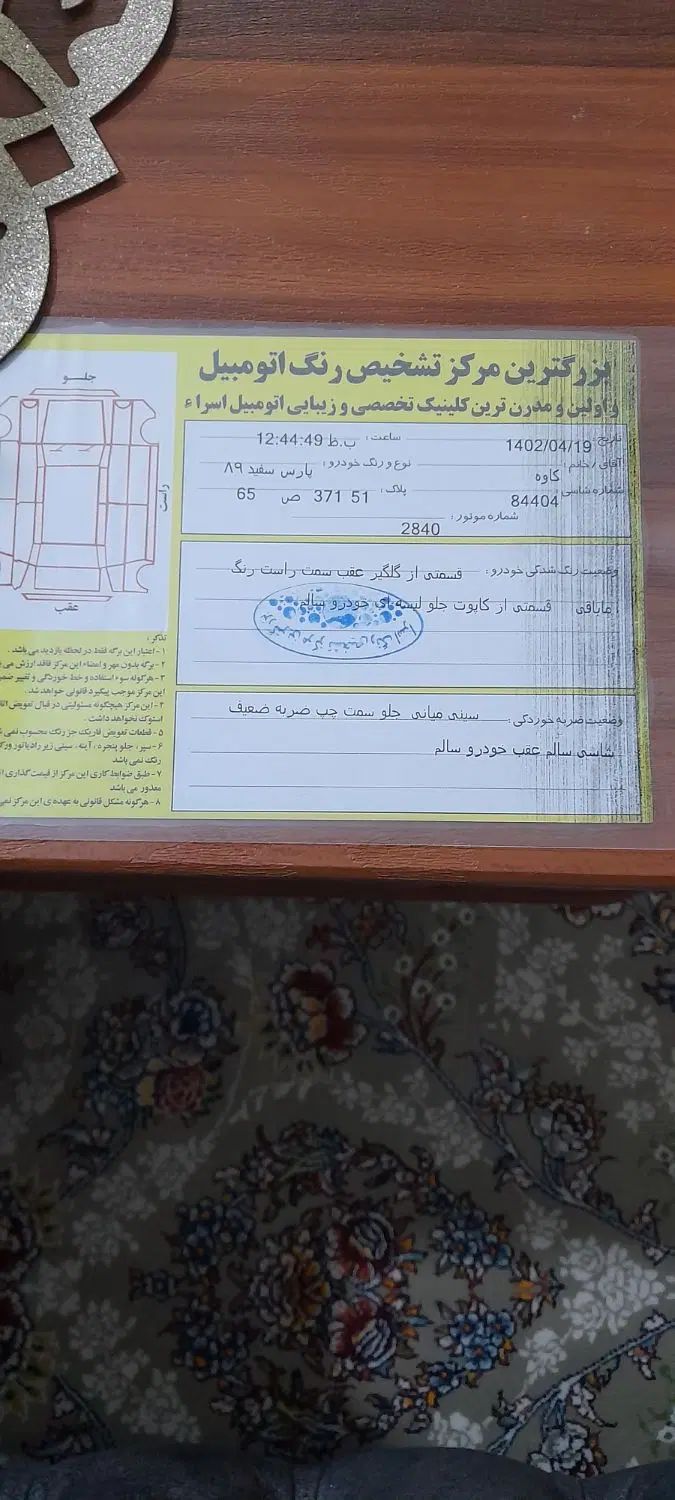 بزرگترین مرکز تشخیص رنگ اتومبیل
و اولین و مدرن ترین کلینیک تخصصی و زیبایی اتومبیل اسراء
تاریخ: 1402/04/19 ساعت: 12:44:49 ب.ظ
آقای / خانم: کاوه نوع و رنگ خودرو: پارس سفید ۸۹
شماره شاسی: 84404 پلاک: 51 371 ص 65
شماره موتور: 2840
وضعیت رنگ شدگی خودرو: قسمتی از گلگیر عقب سمت راست رنگ
مابقی قسمتی از کاپوت جلو لیسه ای خودرو سالم
وضعیت ضربه خوردگی: سینی میانی جلو سمت چپ ضربه ضعیف
شاسی سالم عقب خودرو سالم
جلــو
راست
عقب
تذکر:
۱- اعتبار این برگه فقط در لحظه بازدید می باشد.
۲- برگه بدون مهر و امضاء این مرکز فاقد ارزش
۳- هرگونه سوء استفاده و خط خوردگی و تغییر
این مرکز موجب پیگیرد قانونی خواهد شد.
۴- این مرکز هیچگونه مسئولیتی در قبال تعویض
استوک نخواهد داشت.
۵- قطعات تعویض فابریک جز رنگ محسوب نمی
۶- سپر، جلو پنجره، آینه، سینی زیر رادیاتور
رنگ نمی باشد
۷- طبق ضوابط کاری این مرکز از قیمت گذاری
معذور می باشد
۸- هرگونه مشکل قانونی به عهده ی این مرکز نمی